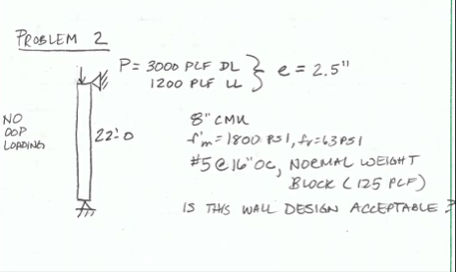 PROBLEM 2
P = 3000 PLF DL
1200 PLF LL
e = 2.5"
NO
OOP
LOADING
22'-0
8" CMU
f'm = 1800 PSI, fr = 63 PSI
#5 @ 16" OC, NORMAL WEIGHT
BLOCK (125 PCF)
IS THIS WALL DESIGN ACCEPTABLE?